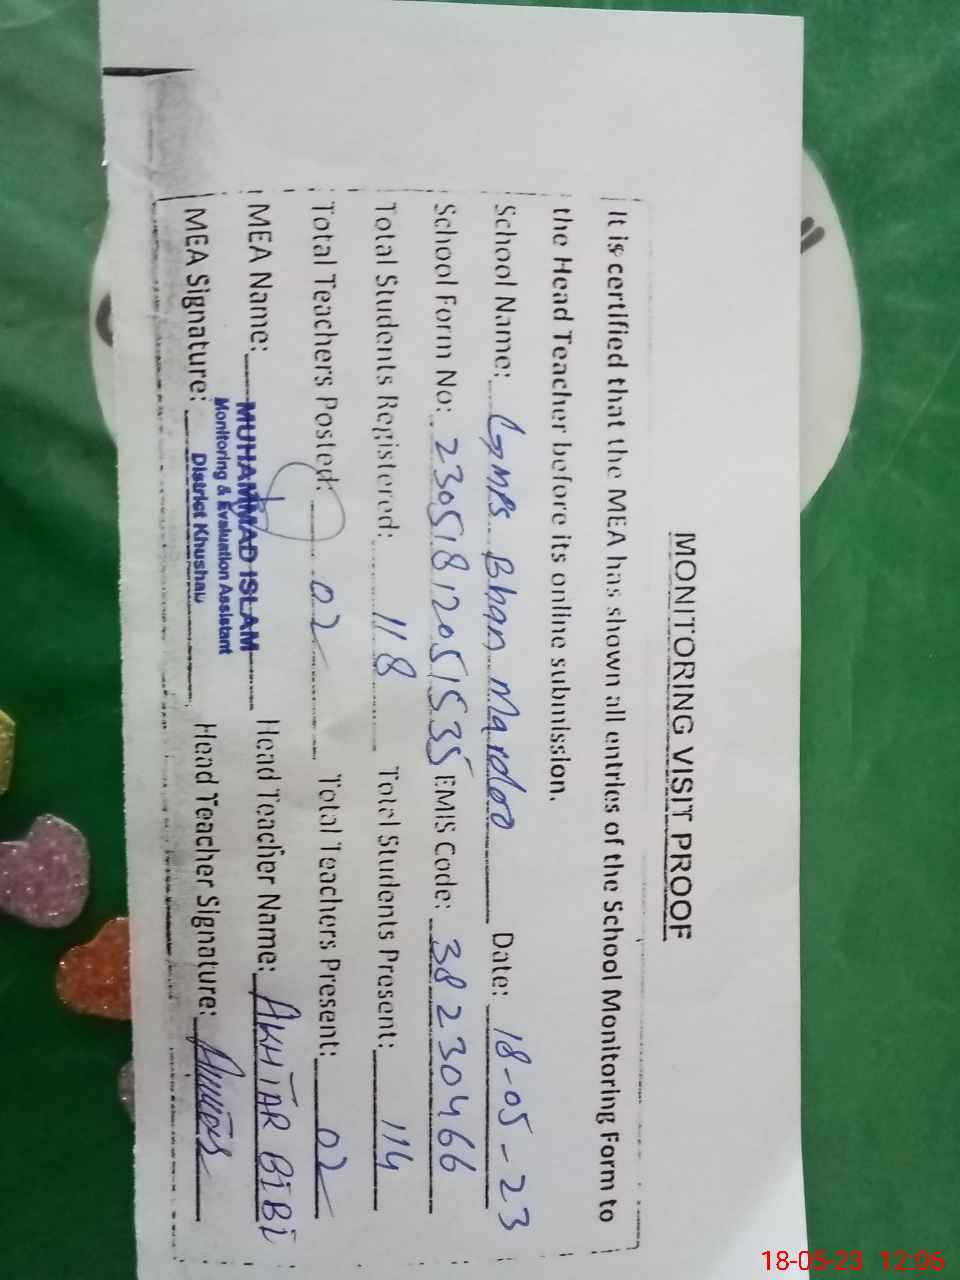 MONITORING VISIT PROOF
It is certified that the MEA has shown all entries of the School Monitoring Form to
the Head Teacher before its online submission.
School Name: GMPS Bhan Mardoo Date: 18-05-23
School Form No: 23051812051535 EMIS Code: 38230466
Total Students Registered: 118 Total Students Present: 114
Total Teachers Posted: 02 Total Teachers Present: 02
MEA Name: MUHAMMAD ISLAM Head Teacher Name: AKHTAR BIBI
Monitoring & Evaluation Assistant
MEA Signature: District Khushab Head Teacher Signature:
18-05-23 12:06